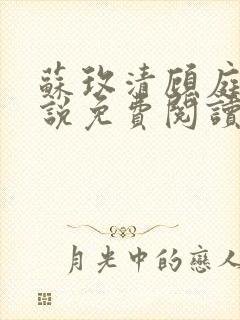 蘇玫清顧庭
說免費閱讀
月光中的戀人